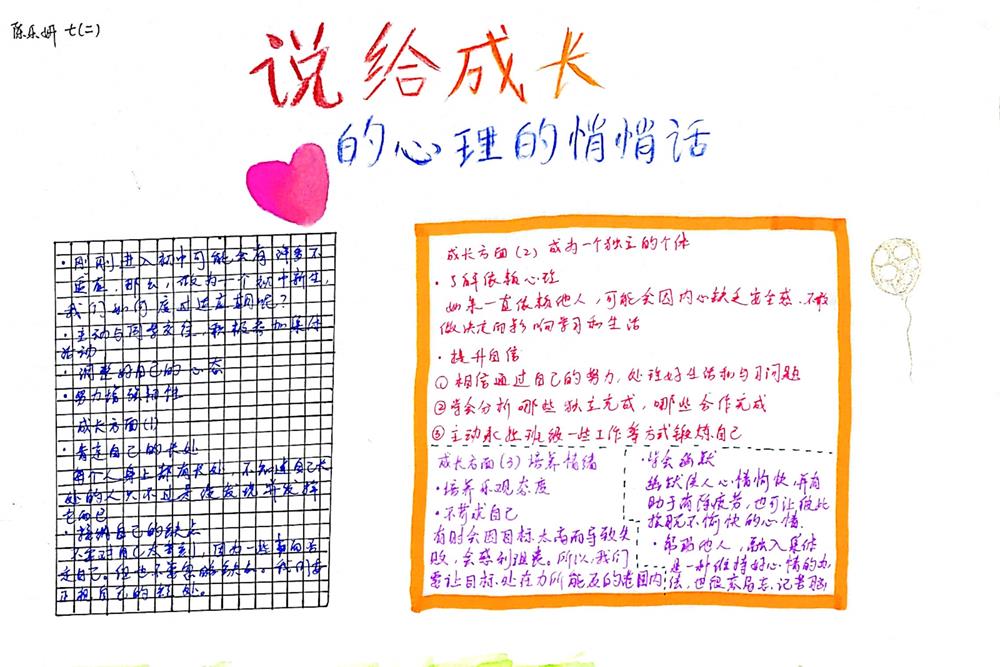 陈乐妍 七(二)
说给成长
的心理的悄悄话
·刚刚进入初中可能会有许多不
适应,那么,做为一个初中新生,
我们如何度过适应期呢?
·主动与同学交往,积极参加集体
活动
·调整好自己的心态
·努力增强韧性
成长方面(1)
·肯定自己的长处
每个人身上都有长处,不知道自己长
处的人只不过是没发现并发挥
它而已
·接纳自己的缺点
不要对自己太苛刻,因为一些事而否
定自己。但也不要忽略缺点。我们要
正视自己的短处。
成长方面(2)成为一个独立的个体
·了解依赖心理
如果一直依赖他人,可能会因内心缺乏安全感,不敢
做决定而影响学习和生活
·提升自信
①相信通过自己的努力,处理好生活和学习问题
②学会分析哪些独立完成,哪些合作完成
③主动承担班级一些工作等方式锻炼自己
成长方面(3)培养情绪
·培养乐观态度
·不苛求自己
有时会因目标太高而导致失
败,会感到沮丧。所以,我们
要让目标处在力所能及的范围内
·学会幽默
幽默使人心情愉快,并有
助于消除疲劳,也可让彼此
摆脱不愉快的心情.
·帮助他人,融入集体
是一种维持好心情的办
法,也很容易忘记苦恼